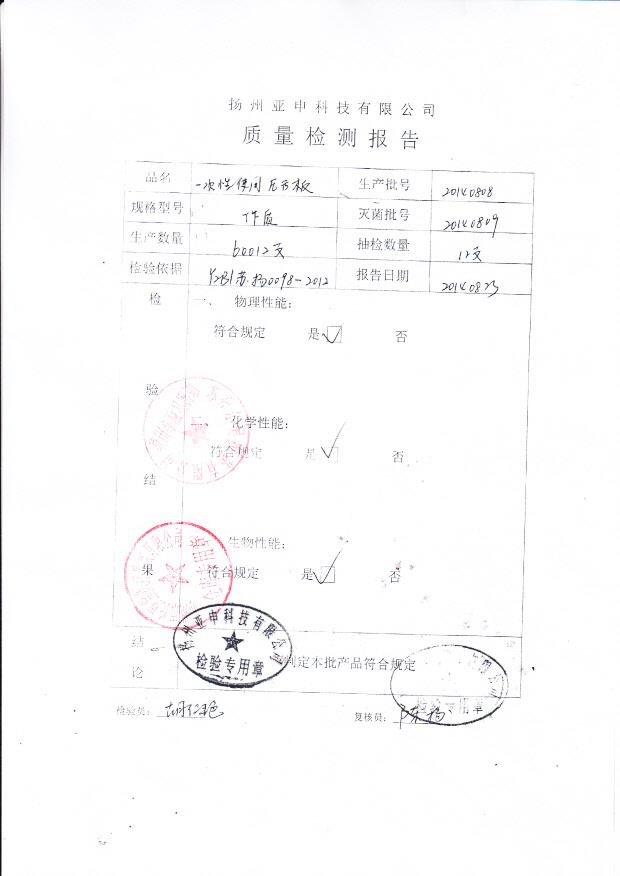 扬州亚申科技有限公司
质量检测报告
品名 一次性使用压舌板 生产批号 20140808
规格型号 木质 灭菌批号 20140809
生产数量 60012支 抽检数量 12支
检验依据 YZB/苏.扬0098-2012 报告日期 20140823
检验结果
一、 物理性能:
符合规定 是 否
二、 化学性能:
符合规定 是 否
生物性能:
符合规定 是 否
结论 判定本批产品符合规定
扬州亚申科技有限公司
检验专用章
检验专用章
检验员:
复核员: 陈杨